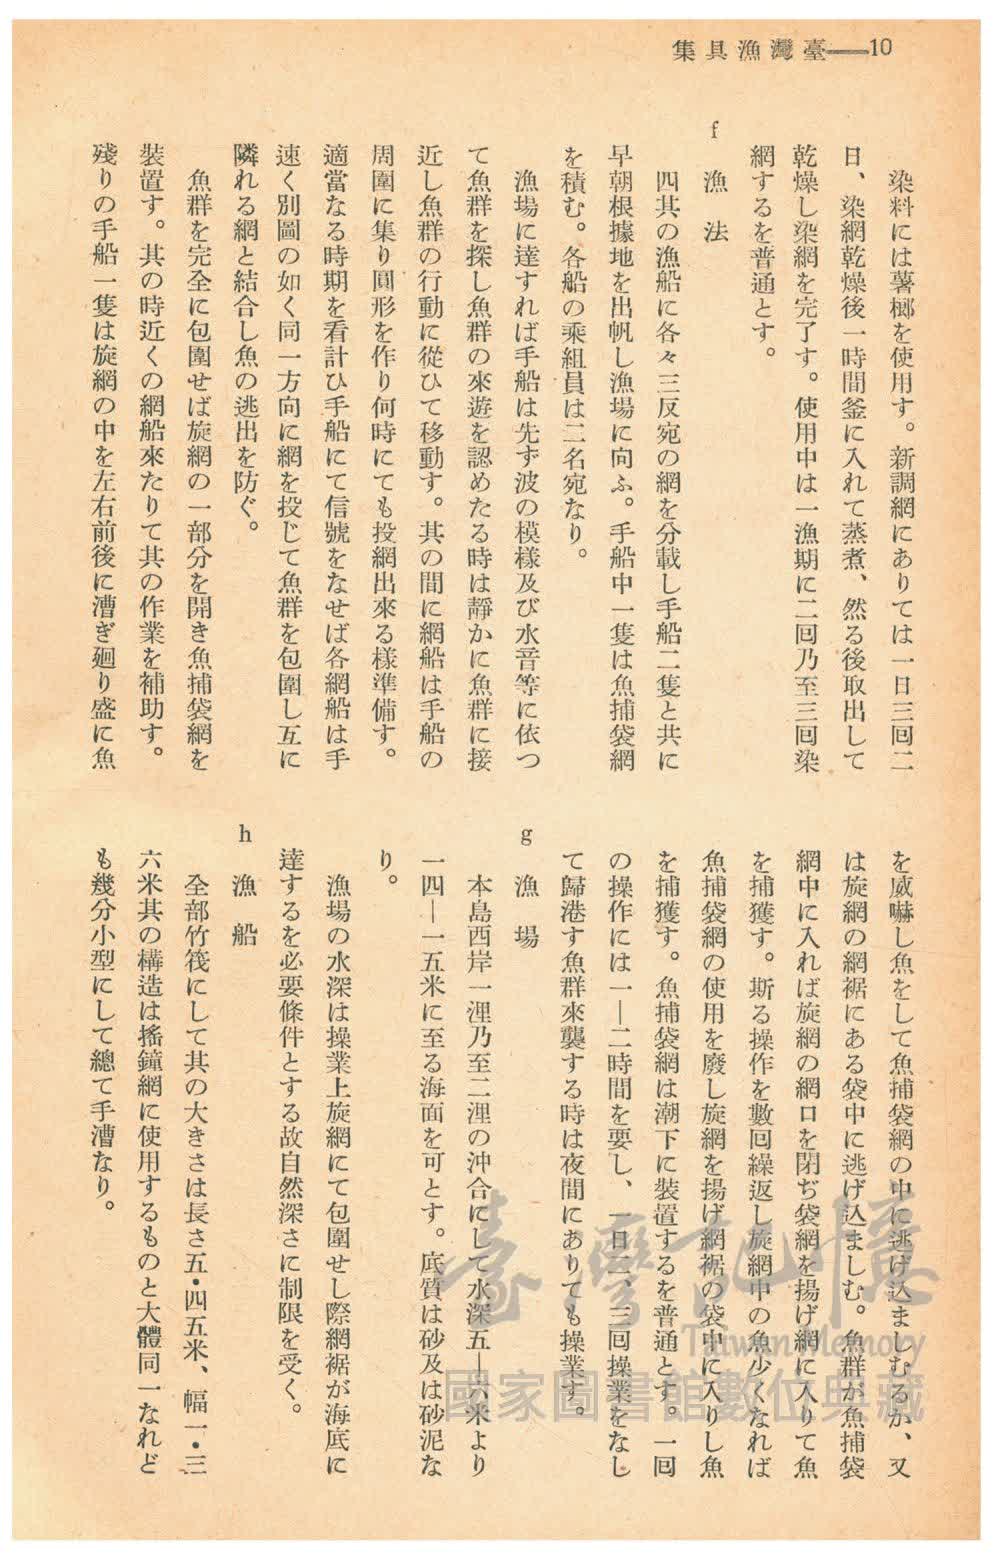 臺灣漁具集——10
染料には薯榔を使用す。新調網にありては一日三回二
日、染網乾燥後一時間釜に入れて蒸煮、然る後取出して
乾燥し染網を完了す。使用中は一漁期に二回乃至三回染
網するを普通とす。
f 漁法
四其の漁船に各々三反宛の網を分載し手船二隻と共に
早朝根據地を出帆し漁場に向ふ。手船中一隻は魚捕袋網
を積む。各船の乘組員は二名宛なり。
漁場に達すれば手船は先ず波の模樣及び水音等に依つ
て魚群を探し魚群の來遊を認めたる時は靜かに魚群に接
近し魚群の行動に從ひて移動す。其の間に網船は手船の
周圍に集り圓形を作り何時にても投網出來る樣準備す。
適當なる時期を看計ひ手船にて信號をなせば各網船は手
速く別圖の如く同一方向に網を投じて魚群を包圍し互に
隣れる網と結合し魚の逃出を防ぐ。
魚群を完全に包圍せば旋網の一部分を開き魚捕袋網を
裝置す。其の時近くの網船來たりて其の作業を補助す。
殘りの手船一隻は旋網の中を左右前後に漕ぎ廻り盛に魚
を威嚇し魚をして魚捕袋網の中に逃げ込ましむるか、又
は旋網の網裾にある袋中に逃げ込ましむ。魚群が魚捕袋
網中に入れば旋網の網口を閉ぢ袋網を揚げ網に入りて魚
を捕獲す。斯る操作を數回繰返し旋網中の魚少くなれば
魚捕袋網の使用を廢し旋網を揚げ網裾の袋中に入りし魚
を捕獲す。魚捕袋網は潮下に裝置するを普通とす。一回
の操作には一—二時間を要し、一日二、三回操業をなし
て歸港す魚群來襲する時は夜間にありても操業す。
g 漁場
本島西岸一浬乃至二浬の沖合にして水深五—六米より
一四—一五米に至る海面を可とす。底質は砂及は砂泥な
り。
漁場の水深は操業上旋網にて包圍せし際網裾が海底に
達するを必要條件とする故自然深さに制限を受く。
h 漁船
全部竹筏にして其の大きさは長さ五・四五米、幅一・三
六米其の構造は搖鐘網に使用するものと大體同一なれど
も幾分小型にして總て手漕なり。
臺灣記憶
Taiwan Memory
國家圖書館數位典藏